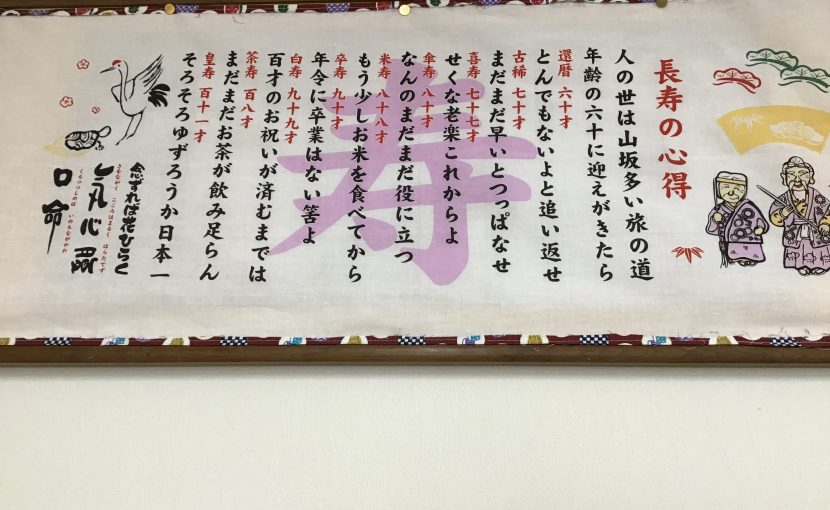 長寿の心得
人の世は山坂多い旅の道
年齢の六十に迎えがきたら
還暦 六十才
とんでもないよと追い返せ
古稀 七十才
まだまだ早いとつっぱなせ
喜寿 七十七才
せくな老楽これからよ
傘寿 八十才
なんのまだまだ役に立つ
米寿 八十八才
もう少しお米を食べてから
卒寿 九十才
年令に卒業はない筈よ
白寿 九十九才
百才のお祝いが済むまでは
茶寿 百八才
まだまだお茶が飲み足らん
皇寿 百十一才
そろそろゆずろうか日本一
寿
念ずれば花ひらく
こころはまるく はらたてず
心
くちつつしめば いのちながかれ
口 命